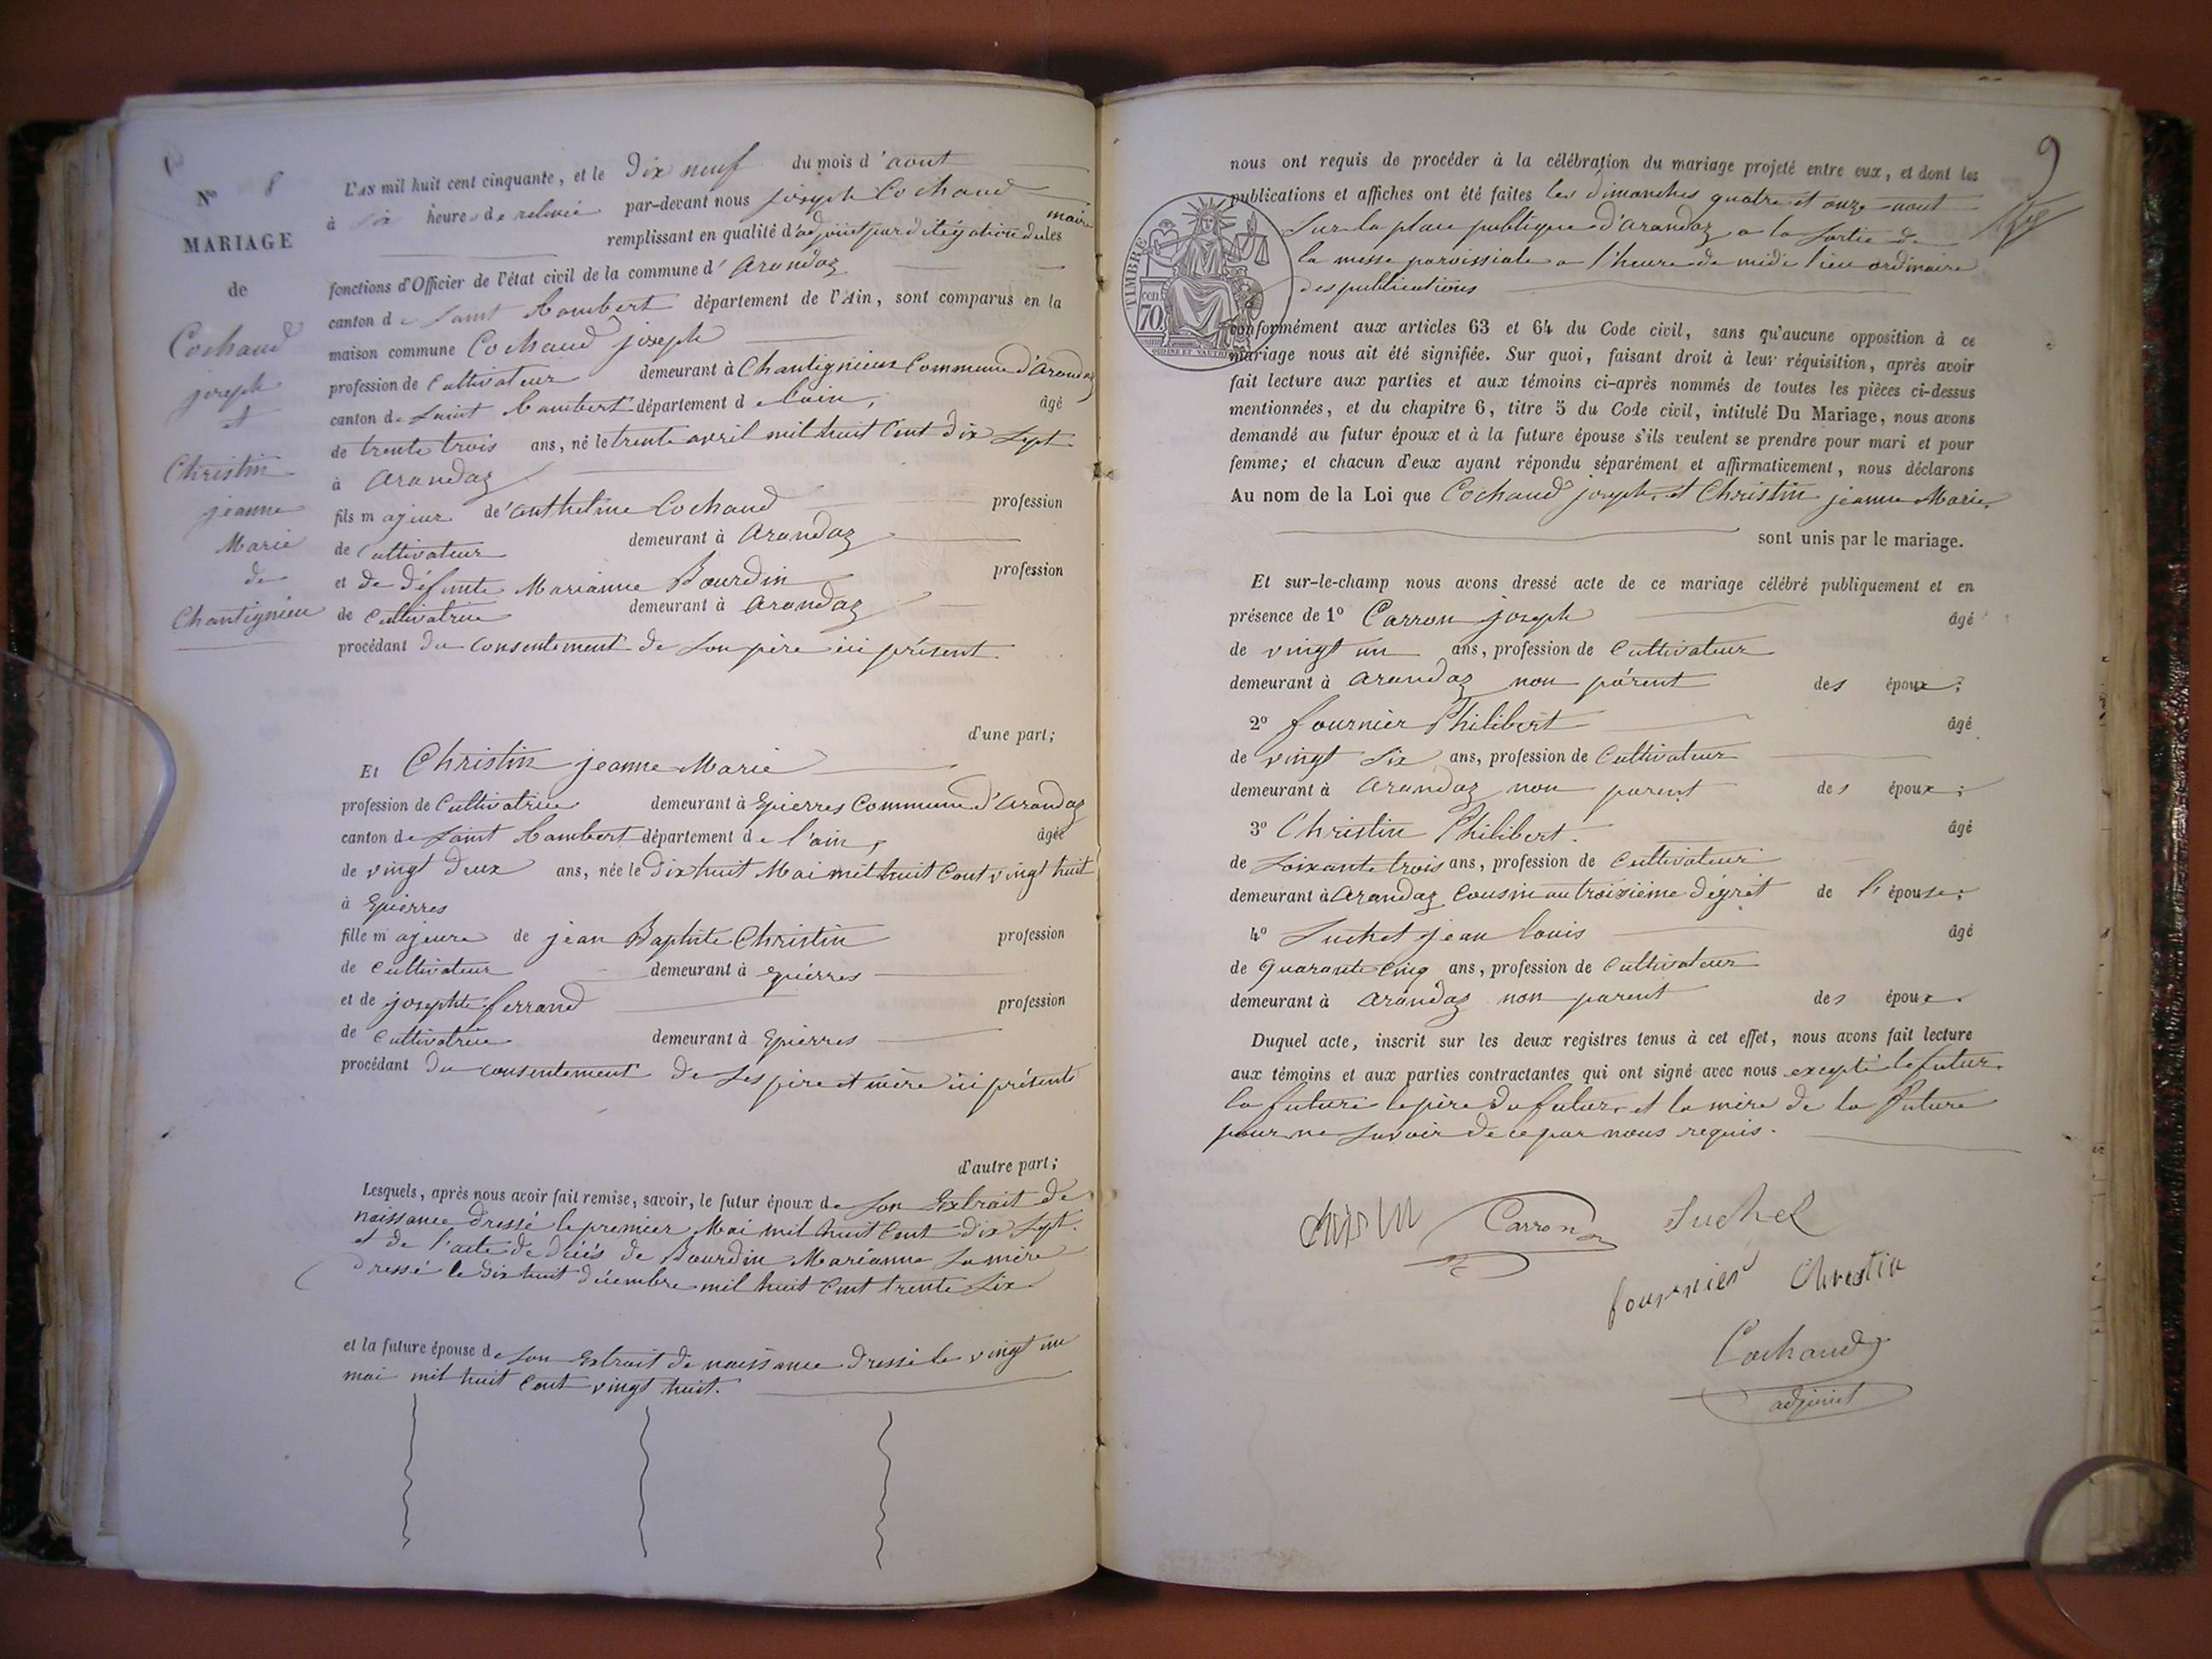 Nº 8
MARIAGE
de
Cochaud
joseph
et
Christin
jeanne
Marie
de
Chantignieu
L'AN mil huit cent cinquante, et le Dix neuf du mois d'aout
à six heures de relevée par-devant nous joseph Cochaud
remplissant en qualité d'adjoint par délégation du maire les
fonctions d'Officier de l'état civil de la commune d'Arandaz
canton de Saint Rambert département de l'Ain, sont comparus en la
maison commune Cochaud joseph
profession de Cultivateur demeurant à Chantignieux Commune d'Arandaz
canton de Saint Rambert département de l'ain, âgé
de trente trois ans, né le trente avril mil huit Cent Dix Sept
à Arandaz
fils majeur de Anthelme Cochaud profession
de Cultivateur demeurant à Arandaz
et de défunte Marianne Bourdin profession
de Cultivatrice demeurant à Arandaz
procédant du consentement de Son père ici présent.
d'une part;
Et Christin jeanne Marie
profession de Cultivatrice demeurant à Epierres Commune d'Arandaz
canton de Saint Rambert département de l'ain, âgée
de vingt Deux ans, née le Dix huit Mai mil huit Cent vingt huit
à Epierres
fille majeure de jean Baptiste Christin profession
de Cultivateur demeurant à Epierres
et de josephte ferrand profession
de Cultivatrice demeurant à Epierres
procédant du consentement de Ses père et mère ici présents
d'autre part;
Lesquels, après nous avoir fait remise, savoir, le futur époux de Son Extrait de
naissance dressé le premier Mai mil huit Cent Dix Sept.
et de l'acte de décés de Bourdin Marianne Sa mère
Dressé le Dix huit décembre mil huit Cent trente Six
et la future épouse de Son Extrait de naissance Dressé le vingt un
mai mil huit Cent vingt huit.
9
nous ont requis de procéder à la célébration du mariage projeté entre eux, et dont les
publications et affiches ont été faites les dimanches quatre et onze aout
Sur la place publique d'Arandaz a la Sortie de
la messe paroissiale a l'heure de midi lieu ordinaire
des publications
TIMBRE
cen.
70
conformément aux articles 63 et 64 du Code civil, sans qu'aucune opposition à ce
mariage nous ait été signifiée. Sur quoi, faisant droit à leur réquisition, après avoir
fait lecture aux parties et aux témoins ci-après nommés de toutes les pièces ci-dessus
mentionnées, et du chapitre 6, titre 5 du Code civil, intitulé Du Mariage, nous avons
demandé au futur époux et à la future épouse s'ils veulent se prendre pour mari et pour
femme; et chacun d'eux ayant répondu séparément et affirmativement, nous déclarons
Au nom de la Loi que Cochaud joseph, et Christin jeanne Marie,
sont unis par le mariage.
Et sur-le-champ nous avons dressé acte de ce mariage célébré publiquement et en
présence de 1º Carron joseph âgé
de vingt un ans, profession de Cultivateur
demeurant à Arandaz non parent des époux;
2º fournier Philibert âgé
de vingt Six ans, profession de Cultivateur
demeurant à Arandaz non parent des époux;
3º Christin Philibert. âgé
de Soixante trois ans, profession de Cultivateur
demeurant à Arandaz Cousin au troisième dégrét de l'épouse;
4º Suchet jean louis âgé
de Quarante Cinq ans, profession de Cultivateur
demeurant à Arandaz non parent des époux.
Duquel acte, inscrit sur les deux registres tenus à cet effet, nous avons fait lecture
aux témoins et aux parties contractantes qui ont signé avec nous excepté le futur,
la future le père du futur, et la mère de la future
pour ne Savoir de ce par nous requis.
Carron
Suchel
fournier
Christin
Cochaud
adjoint